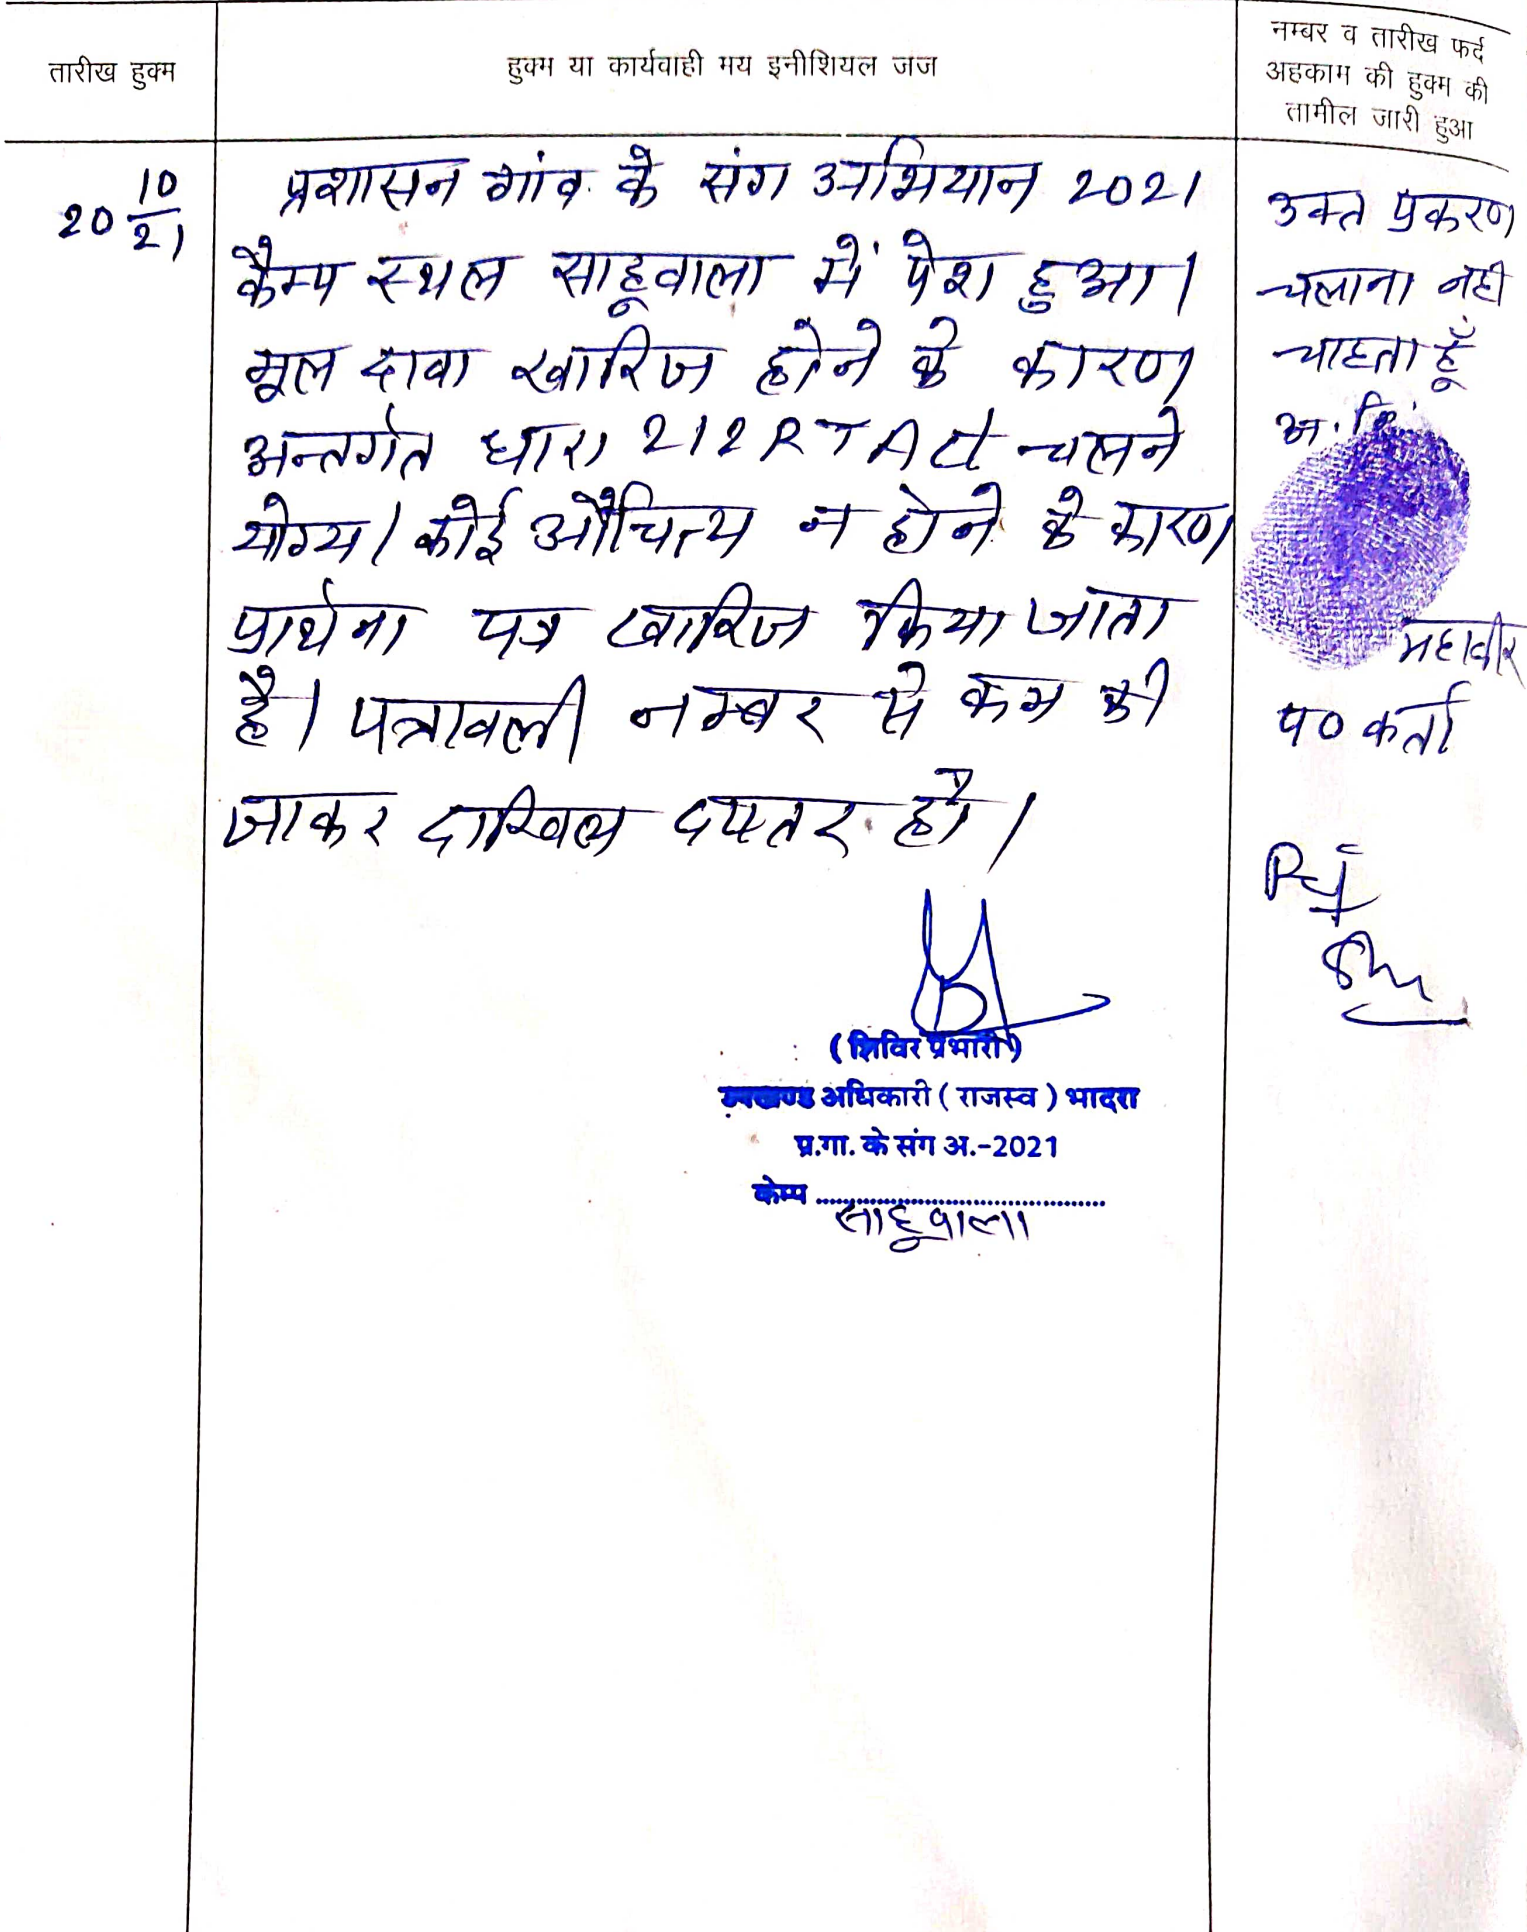 तारीख हुक्म
हुक्म या कार्यवाही मय इनीशियल जज
नम्बर व तारीख फर्द
अहकाम की हुक्म की
तामील जारी हुआ
20 10/21
प्रशासन गांव के संग अभियान 2021
कैम्प स्थल साहूवाला में पेश हुआ।
मूल दावा खारिज होने के कारण
अन्तर्गत धारा 212 RT Act चलने
योग्य। कोई औचित्य न होने के कारण
प्रार्थना पत्र खारिज किया जाता
है। पत्रावली नम्बर से कम की
जाकर दाखिल दफ्तर हो।
(शिविर प्रभारी)
उपखण्ड अधिकारी (राजस्व) भादरा
प्र.गा. के संग अ.-2021
केम्प ........................................
साहूवाला
उक्त प्रकरण
चलाना नही
चाहता हूँ
अ. नि.
महावीर
प० कर्ता